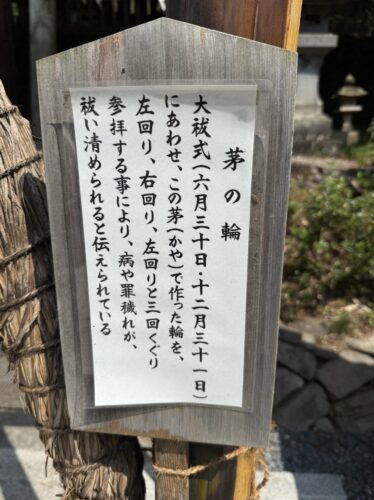 茅の輪
大祓式(六月三十日・十二月三十一日)
にあわせ、この茅(かや)で作った輪を、
左回り、右回り、左回りと三回くぐり
参拝する事により、病や罪穢れが、
祓い清められると伝えられている